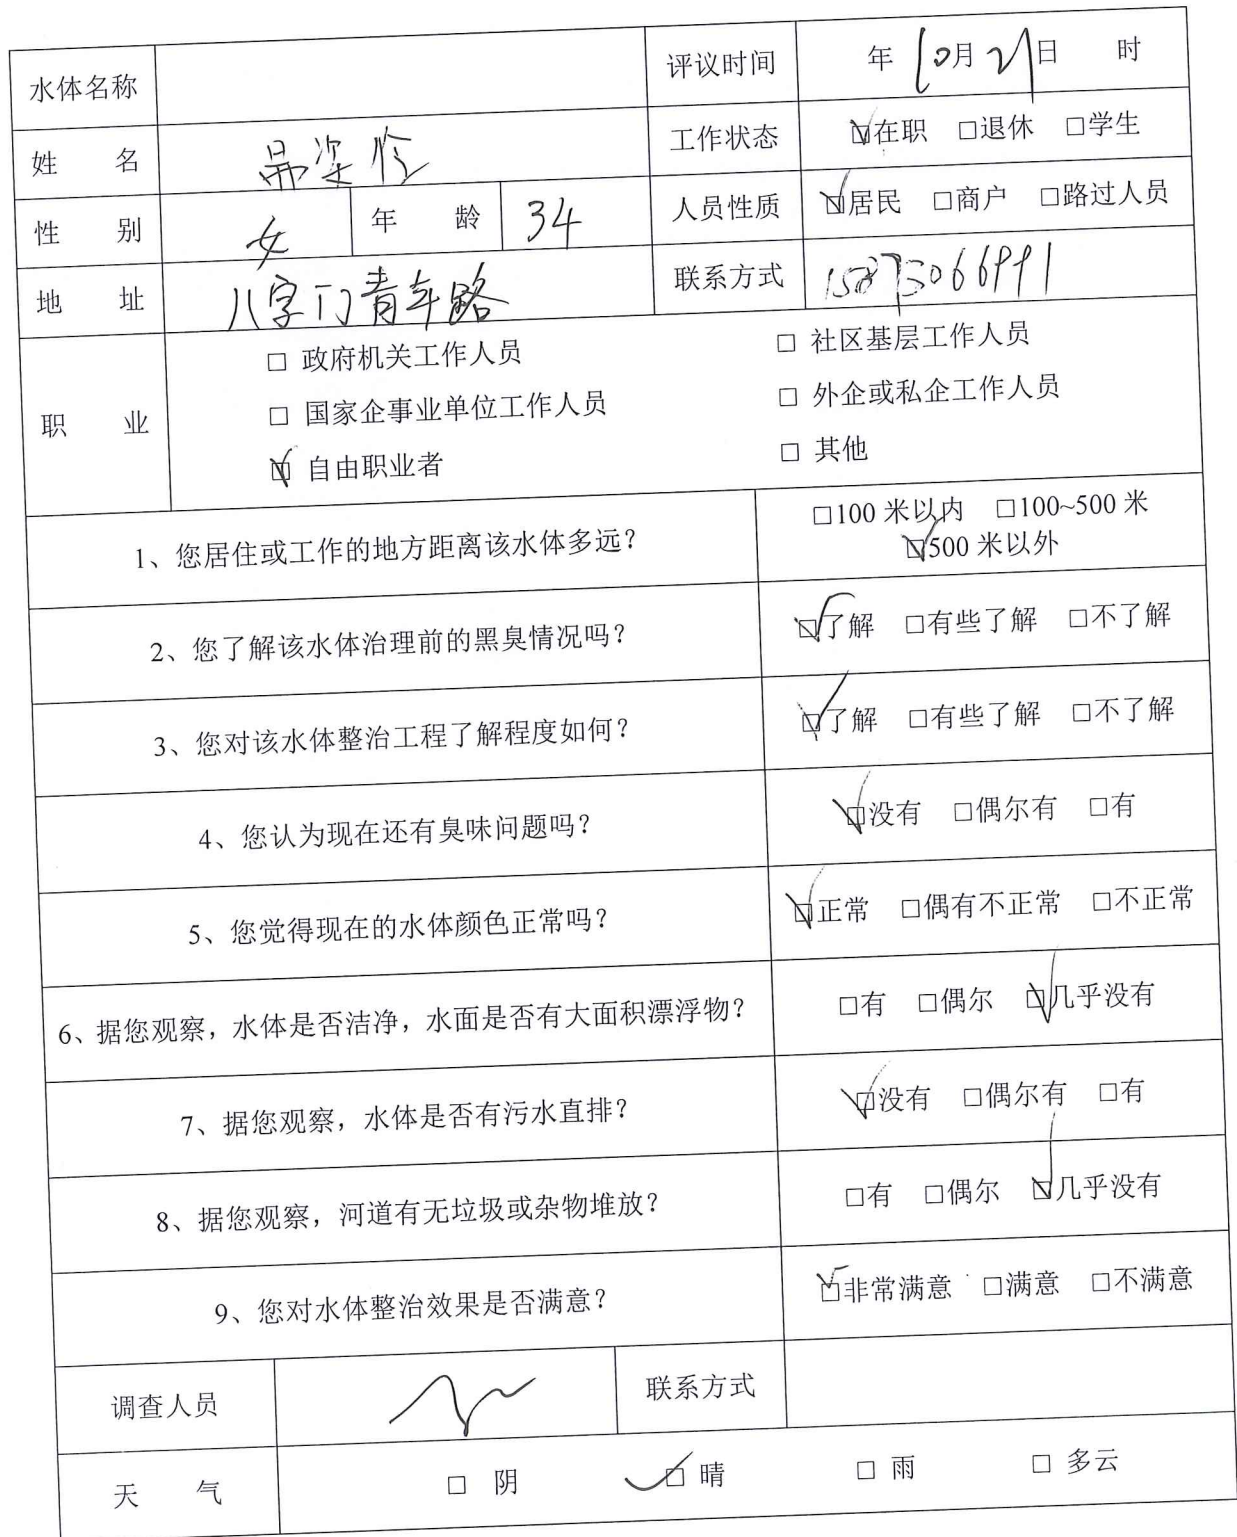 水体名称 评议时间 年 10月21日 时
姓 名 工作状态 ☑在职 □退休 □学生
性 别 女 年 龄 34 人员性质 ☑居民 □商户 □路过人员
地 址 八字门青年路 联系方式
职 业
□ 政府机关工作人员 □ 社区基层工作人员
□ 国家企事业单位工作人员 □ 外企或私企工作人员
☑ 自由职业者 □ 其他
1、您居住或工作的地方距离该水体多远? □100 米以内 □100~500 米
☑500 米以外
2、您了解该水体治理前的黑臭情况吗? ☑了解 □有些了解 □不了解
3、您对该水体整治工程了解程度如何? ☑了解 □有些了解 □不了解
4、您认为现在还有臭味问题吗? ☑没有 □偶尔有 □有
5、您觉得现在的水体颜色正常吗? ☑正常 □偶有不正常 □不正常
6、据您观察，水体是否洁净，水面是否有大面积漂浮物? □有 □偶尔 ☑几乎没有
7、据您观察，水体是否有污水直排? ☑没有 □偶尔有 □有
8、据您观察，河道有无垃圾或杂物堆放? □有 □偶尔 ☑几乎没有
9、您对水体整治效果是否满意? ☑非常满意 □满意 □不满意
调查人员 联系方式
天 气 □ 阴 ☑ 晴 □ 雨 □ 多云